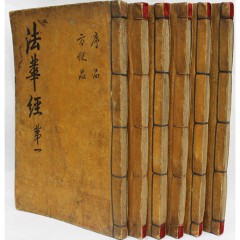 法華經 第一
序品
方便品